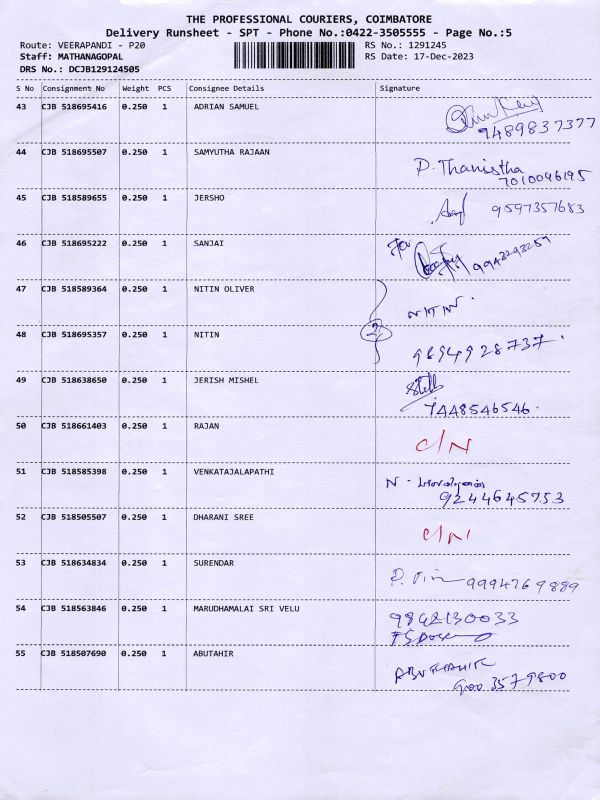 THE PROFESSIONAL COURIERS, COIMBATORE
Delivery Runsheet - SPT - Phone No.:0422-3505555 - Page No.:5
Route: VEERAPANDI - P20 RS No.: 1291245
Staff: MATHANAGOPAL RS Date: 17-Dec-2023
DRS No.: DCJB129124505
S No Consignment No Weight PCS Consignee Details Signature
43 CJB 518695416 0.250 1 ADRIAN SAMUEL
9489837377
44 CJB 518695507 0.250 1 SAMYUTHA RAJAAN P. Thanistha
7010046195
45 CJB 518589655 1 JERSHO 9597357683
0.250
46 CJB 518695222 0.250 1 SANJAI For
9943293259
47 CJB 518589364 0.250 1 NITIN OLIVER NITIN.
2
48 CJB 518695357 0.250 1 NITIN 9894928737.
49 CJB 518638650 0.250 1 JERISH MISHEL
7448546546.
50 CJB 518661403 0.250 1 RAJAN C/N
51 CJB 518585398 0.250 1 VENKATAJALAPATHI N.
9244645753
52 CJB 518505507 0.250 1 DHARANI SREE C/N
53 CJB 518634834 0.250 1 SURENDAR 9994769889
54 CJB 518563846 0.250 1 MARUDHAMALAI SRI VELU 9842130033
55 CJB 518507690 0.250 1 ABUTAHIR ABUTHAHIR
900 3579800